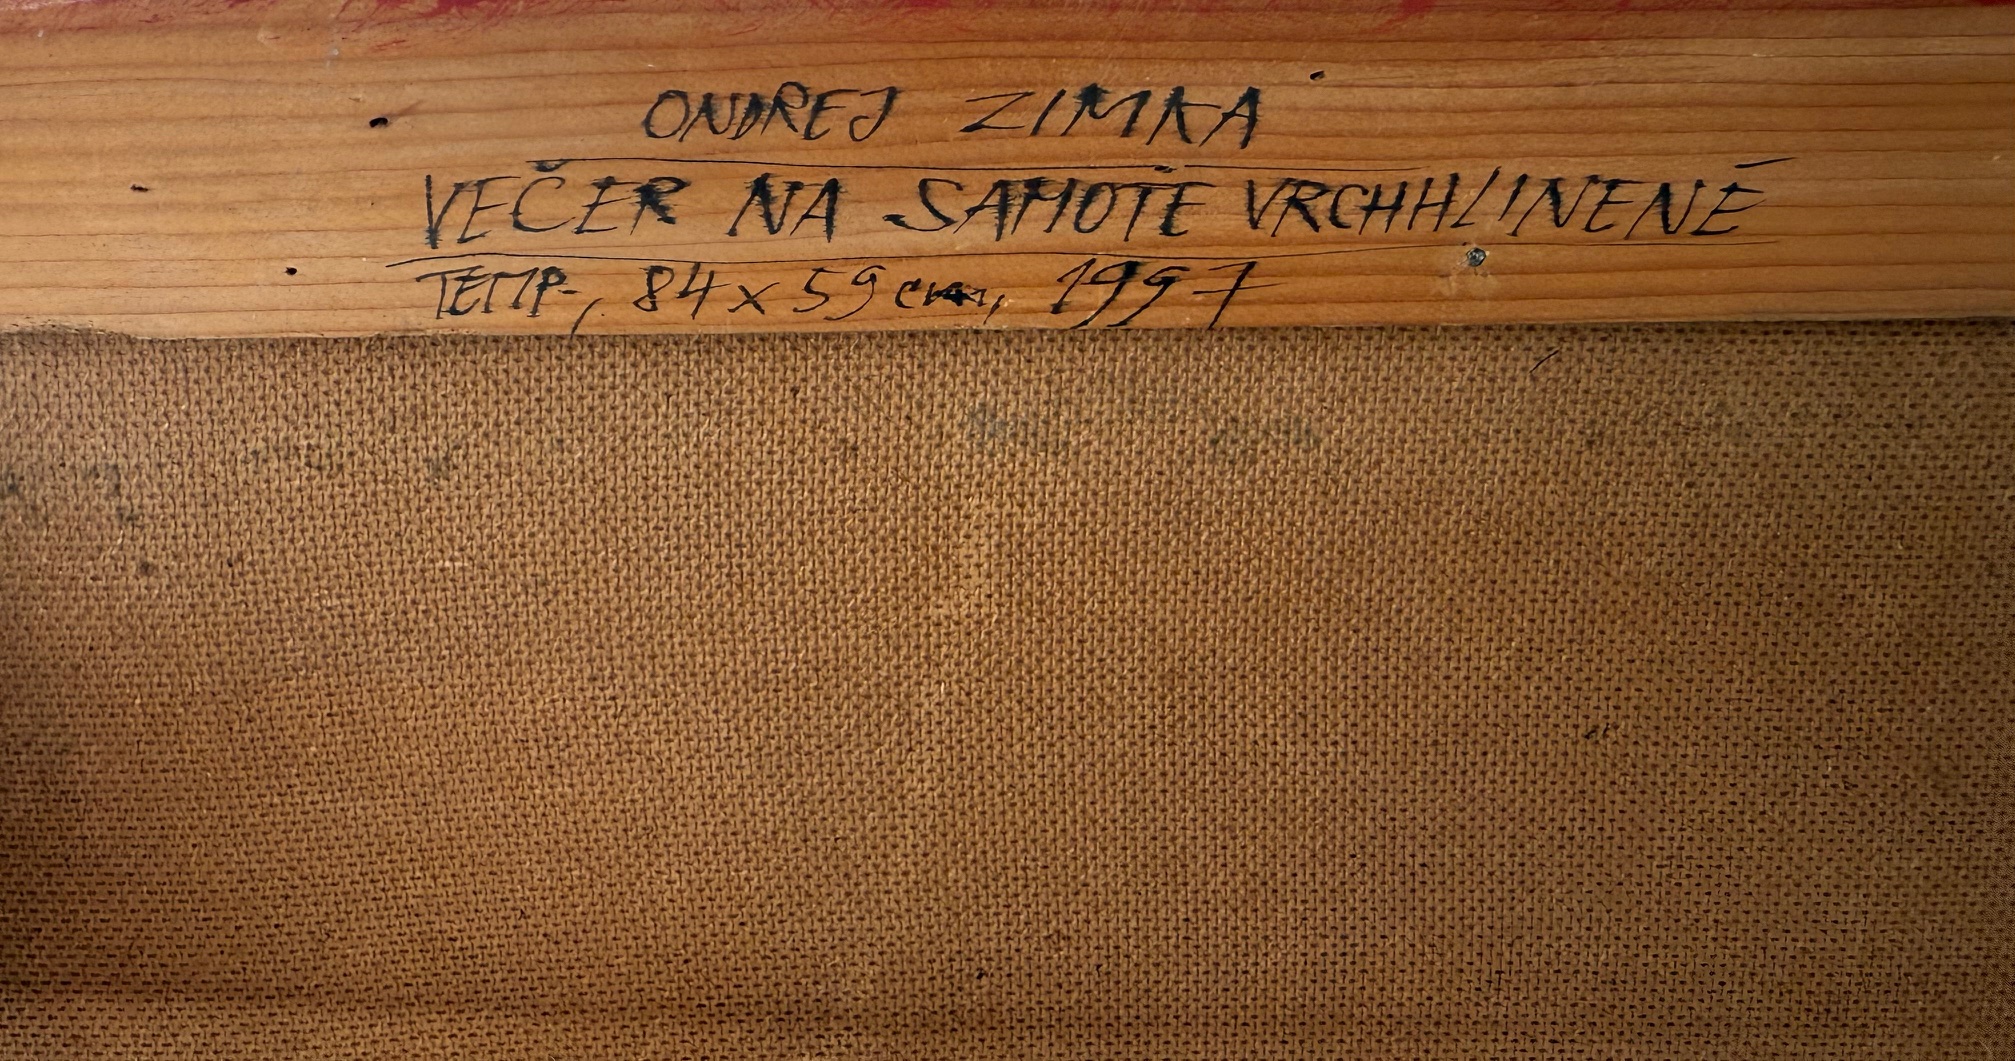 ONDREJ ZIMKA
VEČER NA SAMOTE VRCHHLINENÉ
TEMP., 84 x 59 cm, 1997